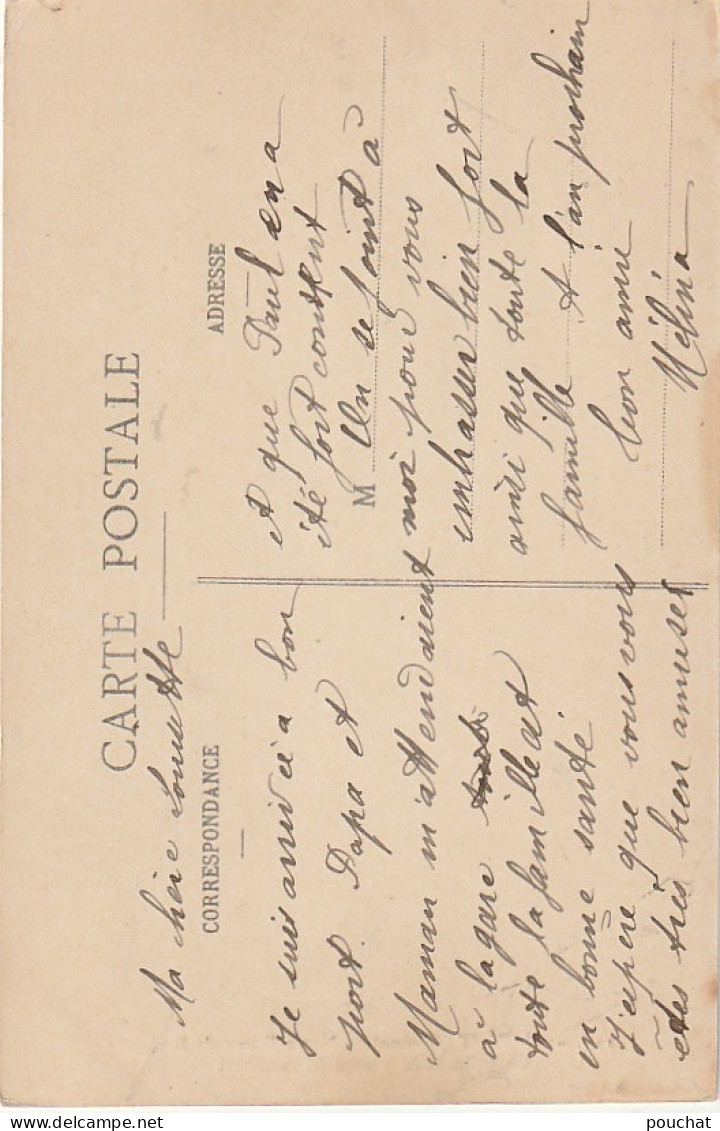 CARTE POSTALE
CORRESPONDANCE
ADRESSE
Ma chère Louisette
Je suis arrivée à bon
port. Papa et
Maman m'attendaient
à la gare
toute la famille est
en bonne santé.
J'espère que vous vous
êtes très bien amuser
et que Paul en a
été fort content
M
On se joint à
moi pour vous
embrasser bien fort
ainsi que toute la
famille A l'an prochain
bon amie
Mélina
pouchat